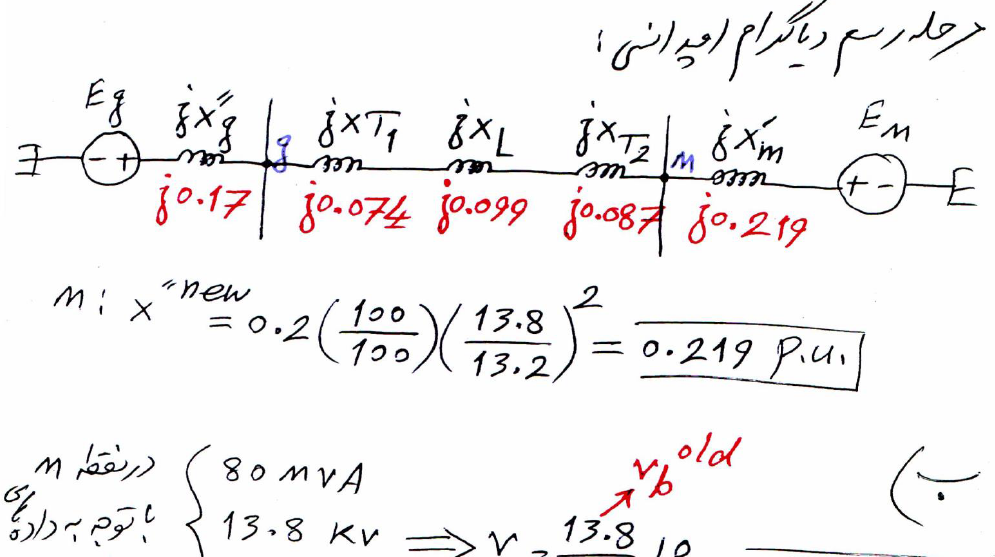 مرحله رسم دیاگرام امپدانسی :
Eg jx"g g jxT1 jxL jxT2 m jx"m Em
j0.17 j0.074 j0.099 j0.087 j0.219
m : x"new = 0.2 (100/100) (13.8/13.2)² = 0.219 p.u.
ب)
در نقطه m { 80 MVA
Vb old
با توجه به داده های { 13.8 KV ⟹ V = 13.8